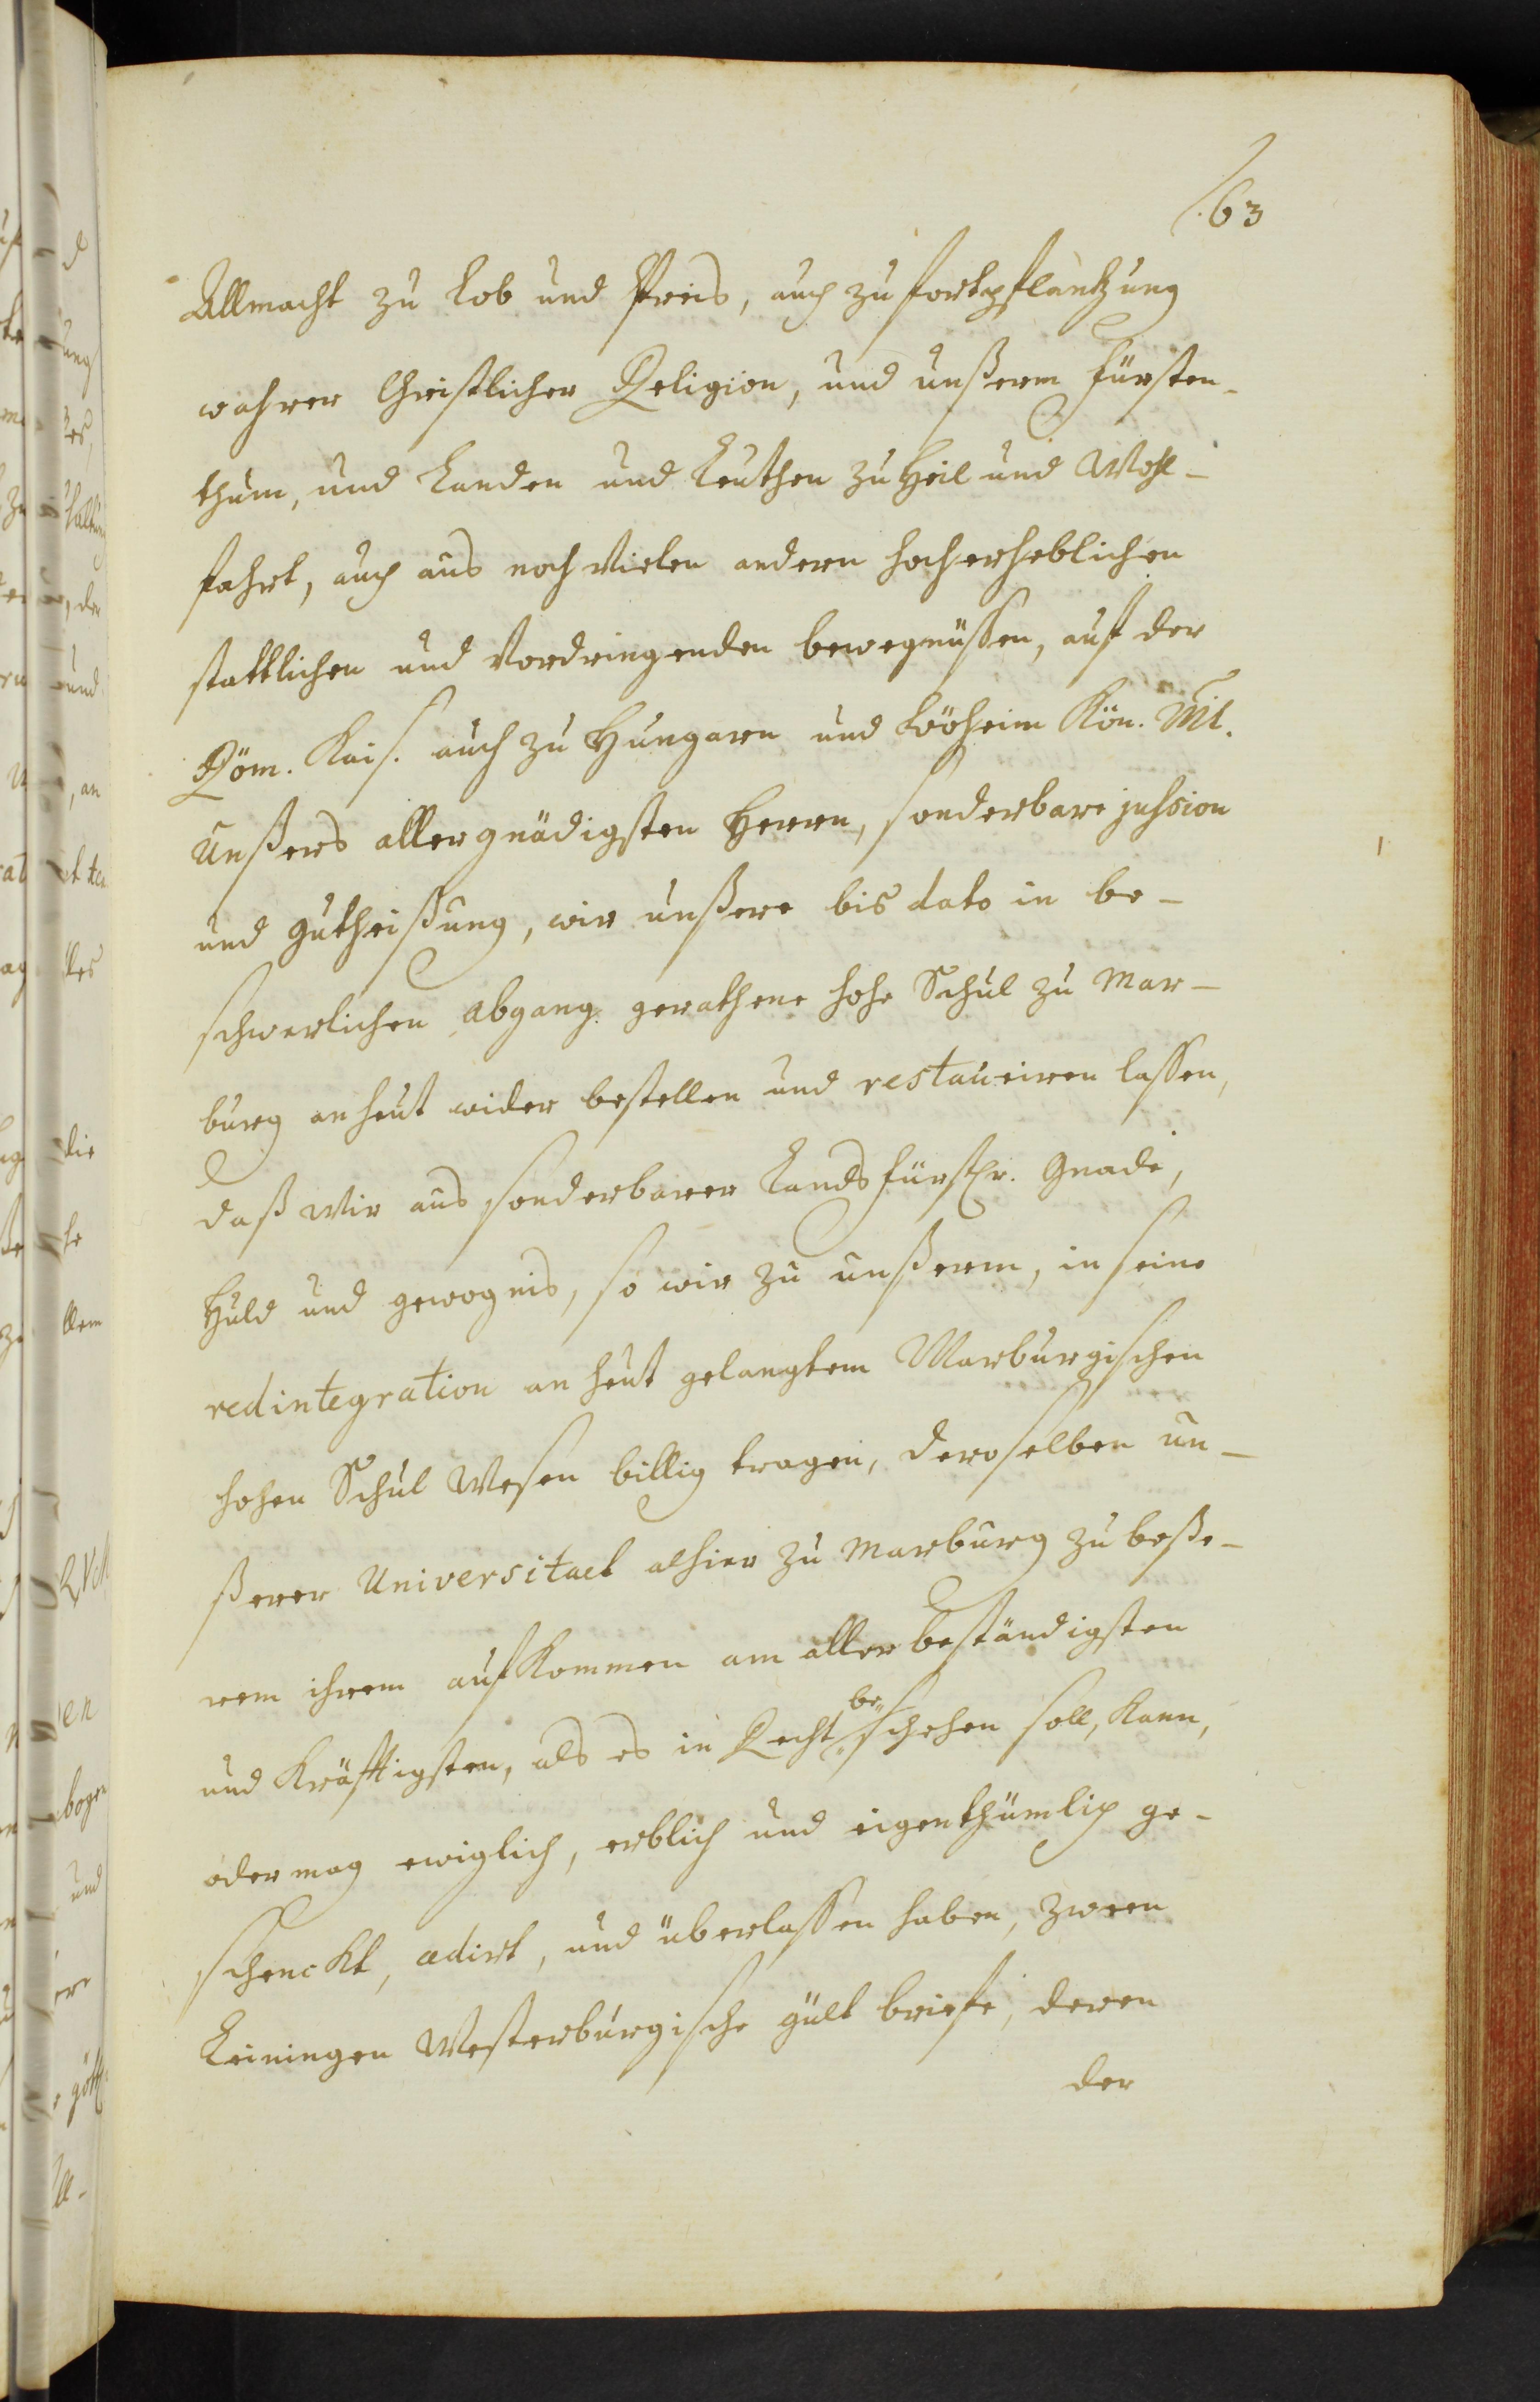 63
Allmacht zu Lob und Preis, auch zu fortpflantzung
wahrer Christlicher Religion, und unßerm Fürsten-
thum, und Landen und Leuthen zu Heil und Wohl-
fahrt, auch aus noch vielen andern hocherheblichen
stattlichen und vordringenden bewegnüssen, auf der
Röm. Kais. auch zu Hungarn und Böheim Kön. Mt.
Unßers allergnädigsten Herrn, sonderbare jussion
und gutheißung, wir unßere bis dato in be-
schwerlichen abgang gerathene hohe Schul zu Mar-
burg anheut wider bestellen und restauriren lassen,
daß wir aus sonderbarer Landsfürstlr. Gnade,
Huld und gewognis, so wir zu unßerm, in seine
redintegration anheut gelangtem Marburgischen
hohen Schul Wesen billig tragen, deroselben un-
ßerer Universitaet alhier zu Marburg zu beße-
rem ihrem aufkommen am allerbeständigsten
und kräfftigsten, als es in Recht beschehen soll, kann,
oder mag ewiglich, erblich und eigenthümlich ge-
schenckt, cedirt, und überlassen haben, zween
Leiningen Westerburgische gült briefe, deren
der